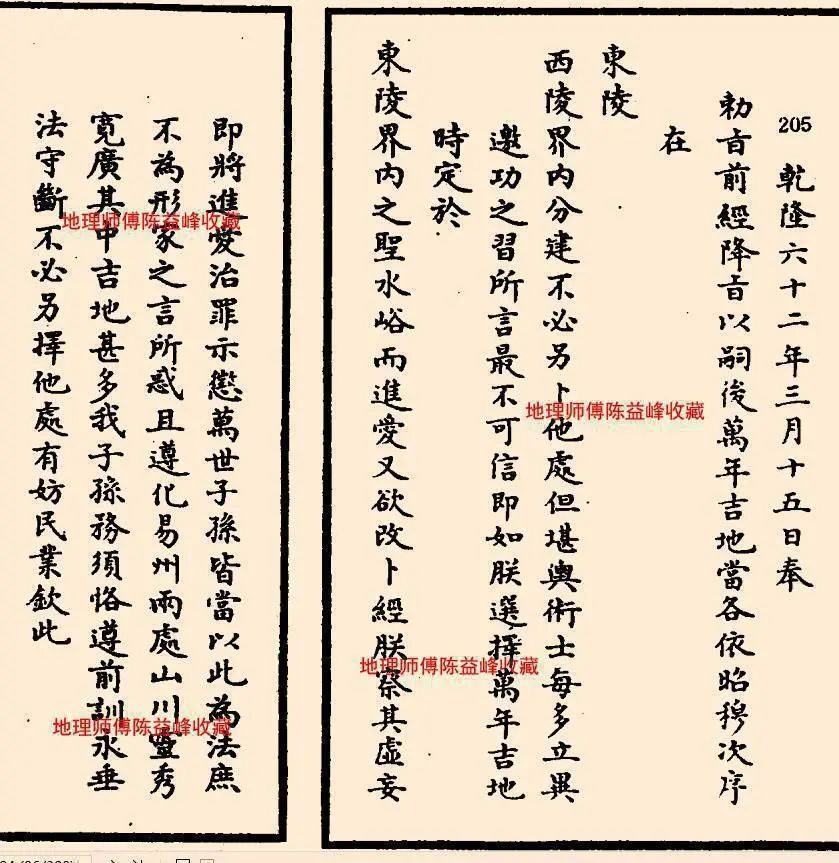 205
乾隆六十二年三月十五日奉
勅旨前經降旨以嗣後萬年吉地當各依昭穆次序
在
東陵
西陵界內分建不必另卜他處但堪輿術士每多立異
邀功之習所言最不可信即如朕選擇萬年吉地
時定於
東陵界內之聖水峪而進愛又欲改卜經朕察其虛妄
即將進愛治罪示懲萬世子孫皆當以此為法庶
不為形家之言所惑且遵化易州兩處山川靈秀
寬廣其中吉地甚多我子孫務須恪遵前訓永垂
法守斷不必另擇他處有妨民業欽此
地理师傅陈益峰收藏
地理师傅陈益峰收藏
地理师傅陈益峰收藏
地理师傅陈益峰收藏